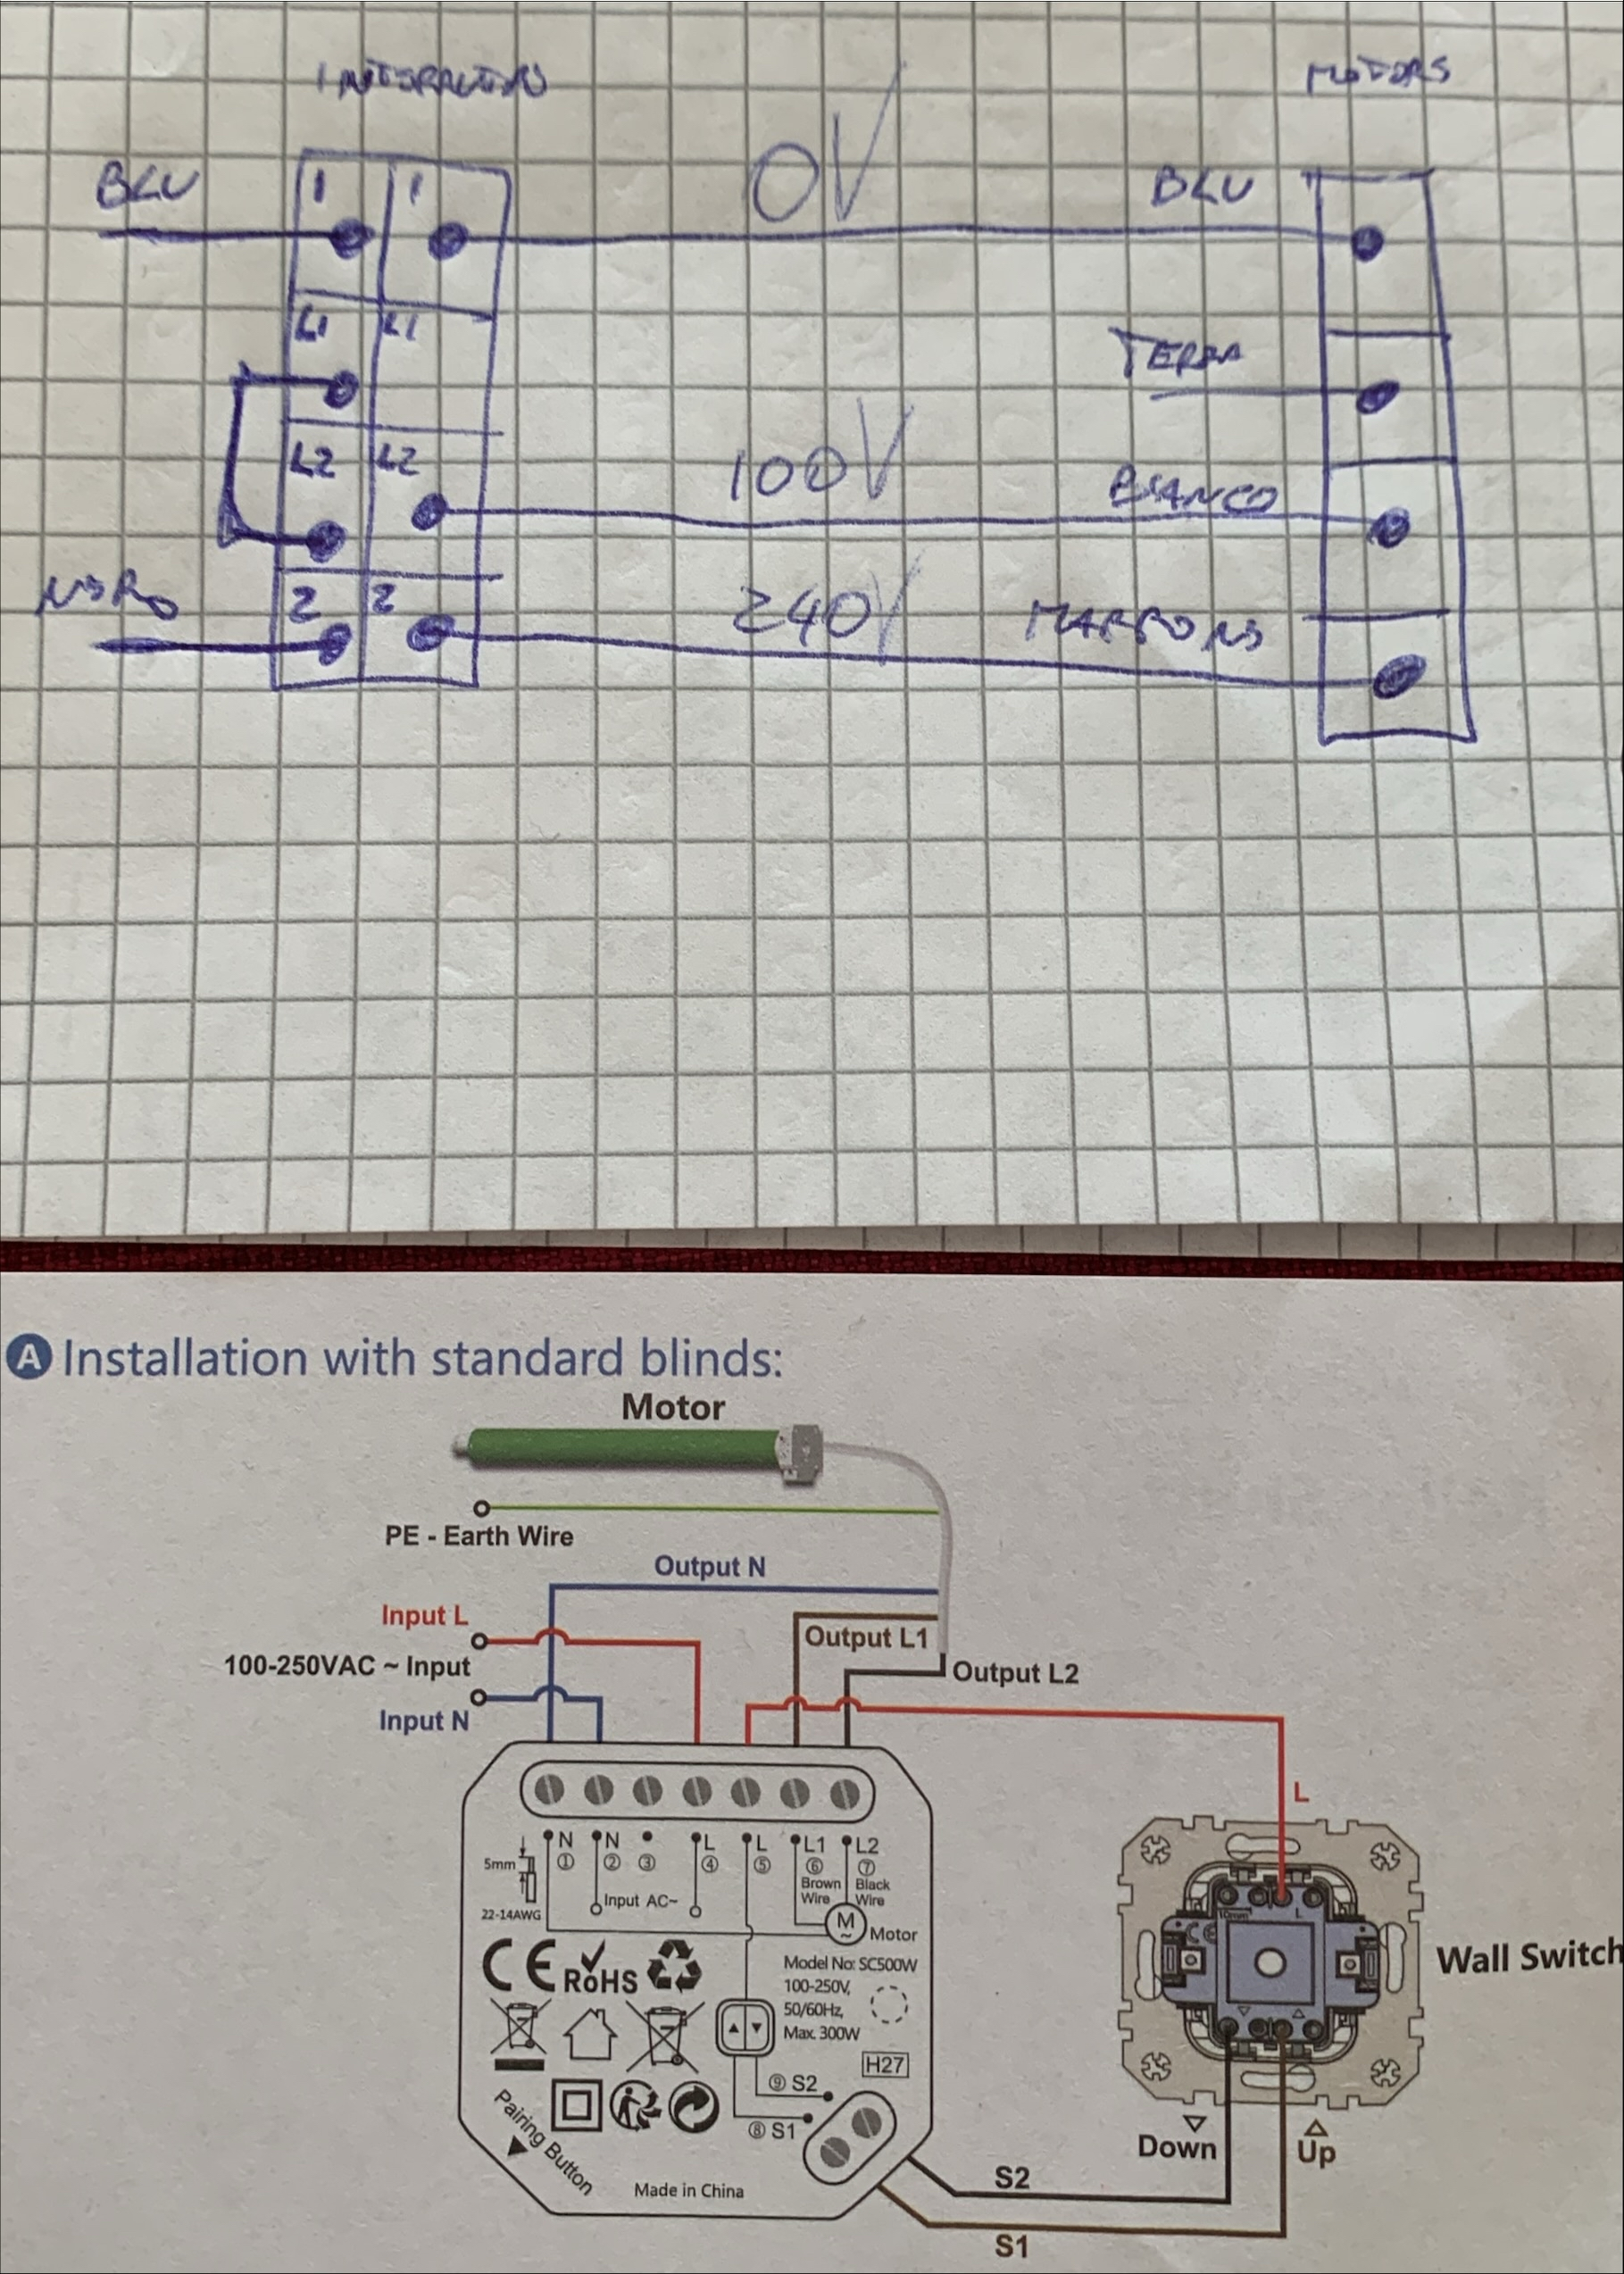 MOTORS
BLU
1
1
0V
BLU
L1
L1
TERRA
L2
L2
100V
BIANCO
NERO
2
2
240V
A Installation with standard blinds:
Motor
PE - Earth Wire
Output N
Input L
Output L1
100-250VAC ~ Input
Output L2
Input N
L
N
N
L
L
L1
L2
5mm
①
②
③
④
⑤
⑥
⑦
Brown Wire
Black Wire
Input AC~
22-14AWG
M
~
Motor
CE
RoHS
Model No: SC500W
100-250V,
50/60Hz,
Max. 300W
Wall Switch
H27
⑨ S2
⑧ S1
Pairing Button
Made in China
Down
Up
S2
S1